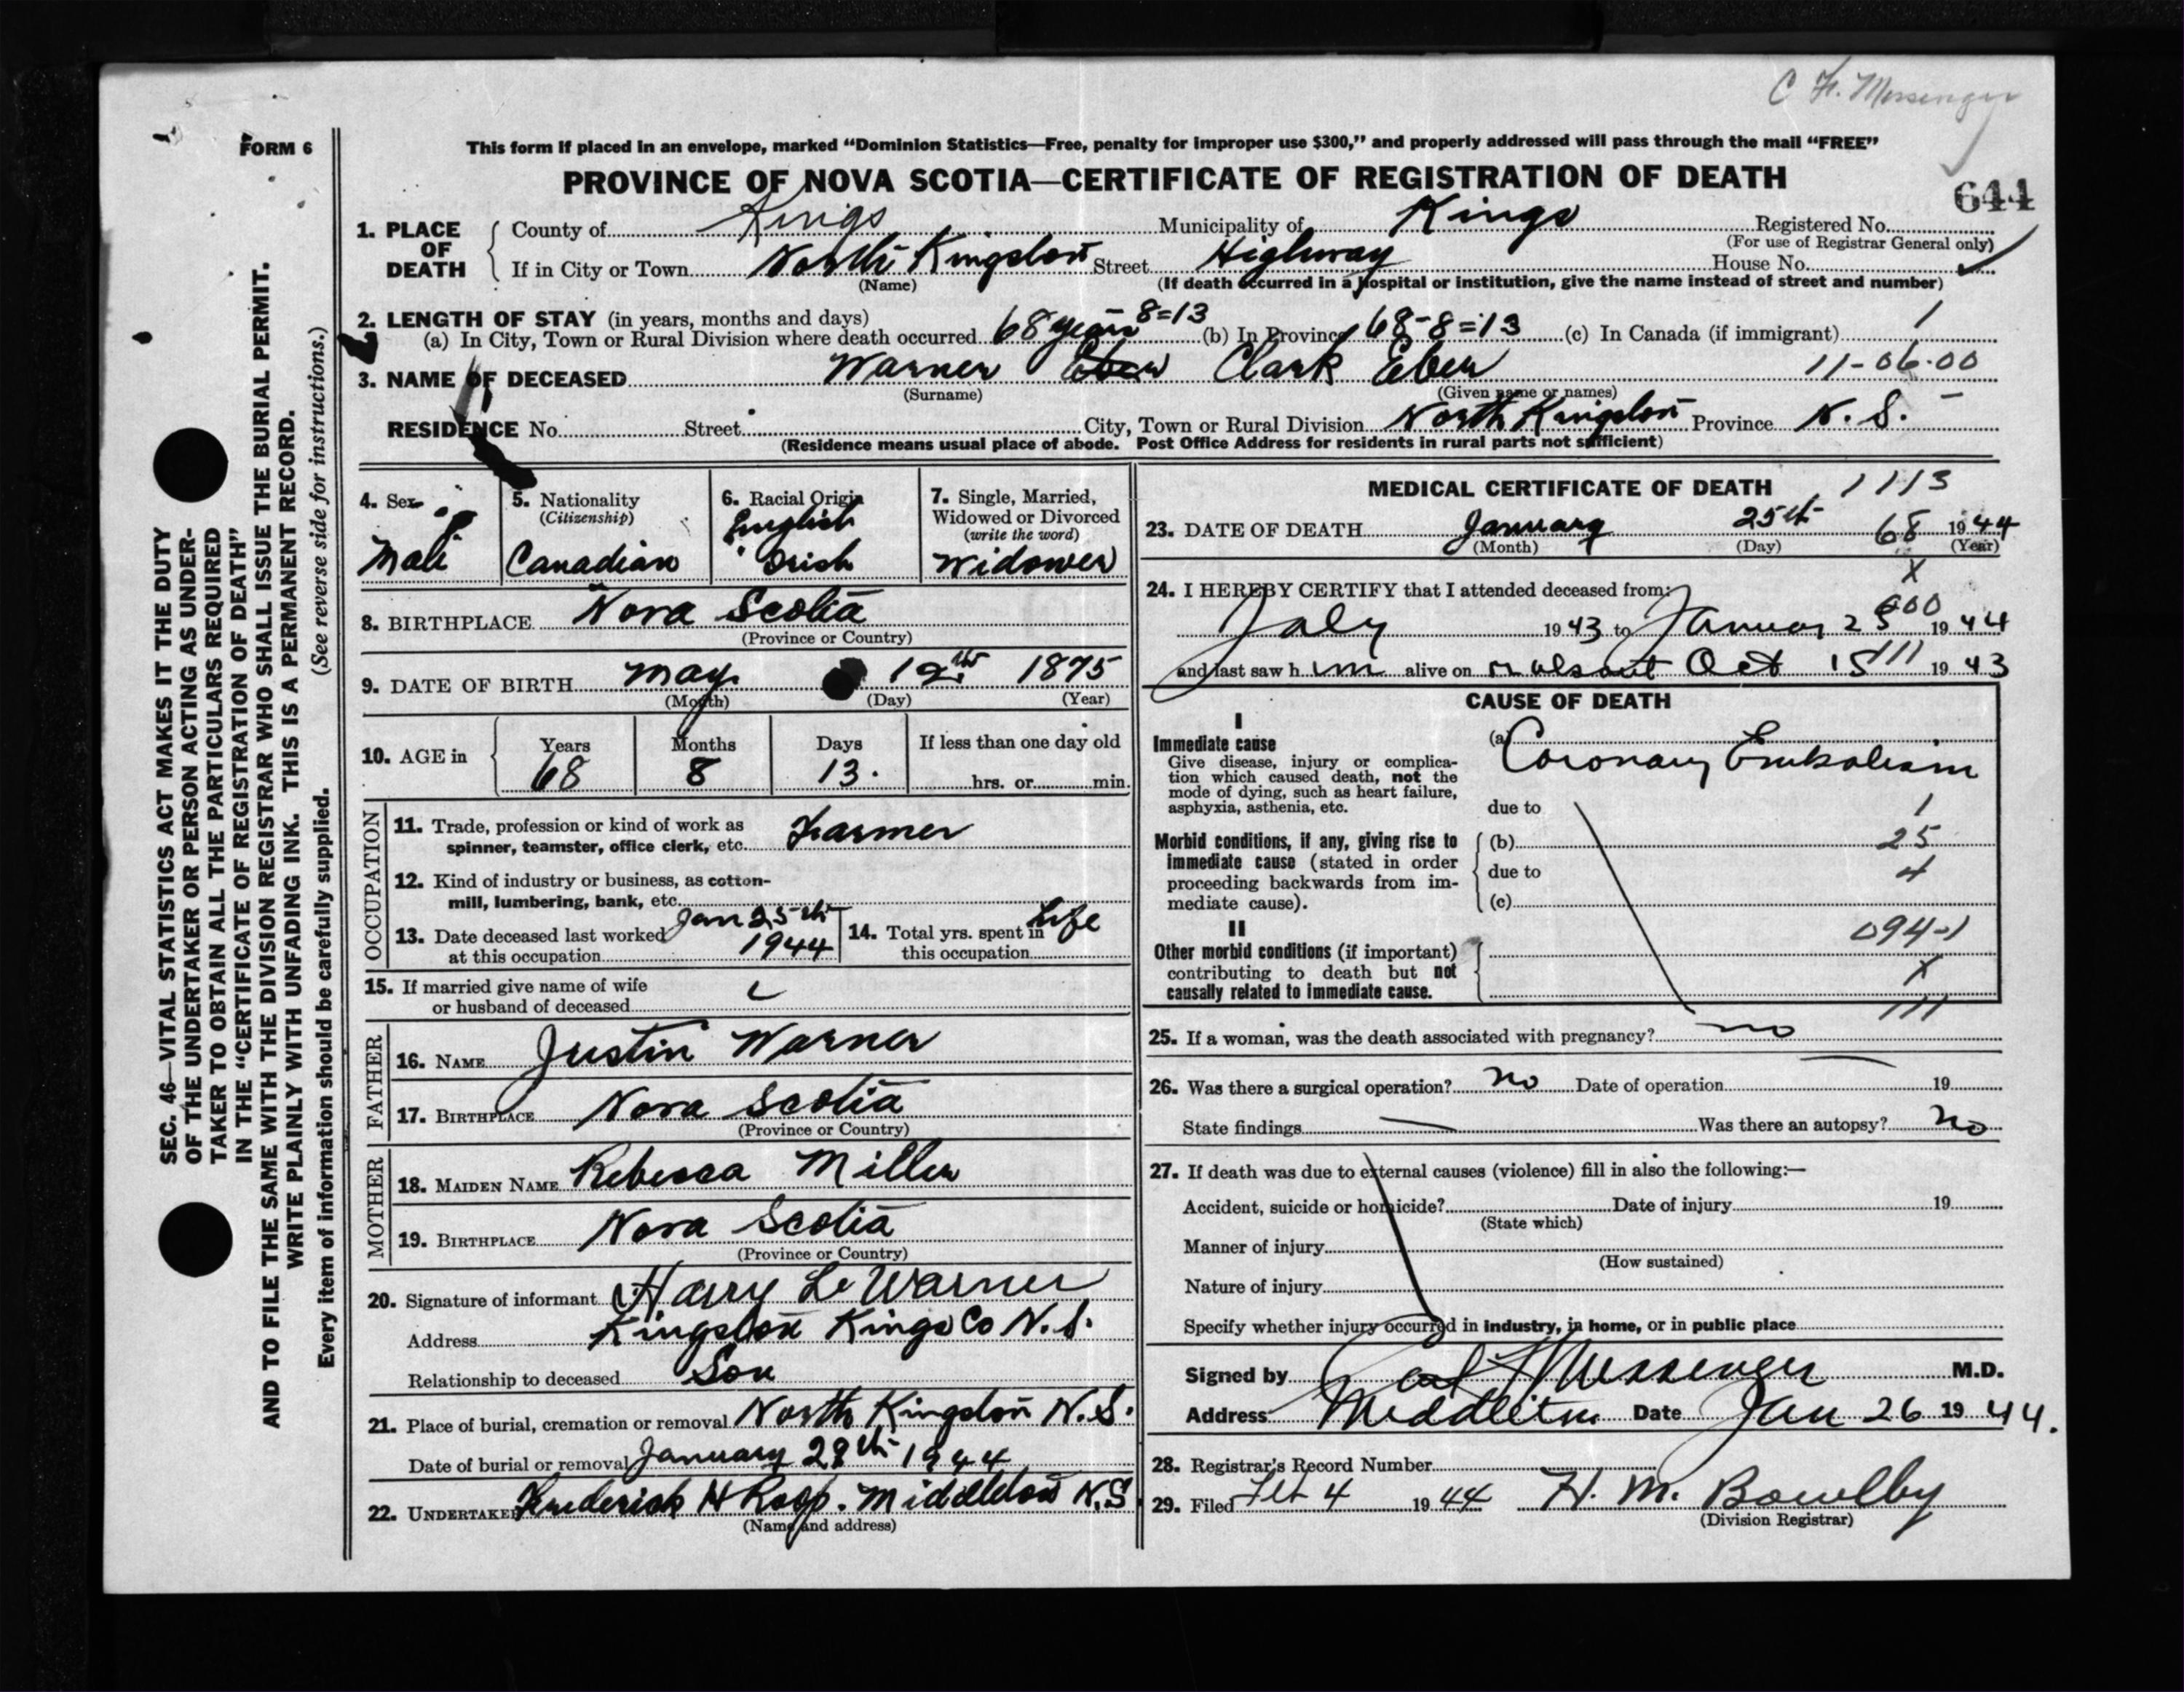 C F. Messenger
FORM 6
This form if placed in an envelope, marked "Dominion Statistics—Free, penalty for improper use $300," and properly addressed will pass through the mail "FREE"
PROVINCE OF NOVA SCOTIA—CERTIFICATE OF REGISTRATION OF DEATH
644
1. PLACE OF DEATH
County of Kings Municipality of Kings Registered No.
(For use of Registrar General only)
If in City or Town North Kingston Street Highway House No.
(Name) (If death occurred in a hospital or institution, give the name instead of street and number)
2. LENGTH OF STAY (in years, months and days)
(a) In City, Town or Rural Division where death occurred 68 years 8=13 (b) In Province 68-8=13 (c) In Canada (if immigrant) 1
3. NAME OF DECEASED Warner Clark Eber 11-06-00
(Surname) (Given name or names)
RESIDENCE No. Street City, Town or Rural Division North Kingston Province N. S.
(Residence means usual place of abode. Post Office Address for residents in rural parts not sufficient)
4. Sex Male
5. Nationality (Citizenship) Canadian
6. Racial Origin English Irish
7. Single, Married, Widowed or Divorced (write the word) Widower
8. BIRTHPLACE Nova Scotia
(Province or Country)
9. DATE OF BIRTH May 12th 1875
(Month) (Day) (Year)
10. AGE in Years 68 Months 8 Days 13. If less than one day old hrs. or min.
OCCUPATION
11. Trade, profession or kind of work as spinner, teamster, office clerk, etc. Farmer
12. Kind of industry or business, as cotton-mill, lumbering, bank, etc.
13. Date deceased last worked at this occupation Jan 25th 1944
14. Total yrs. spent in this occupation Life
15. If married give name of wife or husband of deceased
FATHER
16. NAME Justin Warner
17. BIRTHPLACE Nova Scotia
(Province or Country)
MOTHER
18. MAIDEN NAME Rebecca Miller
19. BIRTHPLACE Nova Scotia
(Province or Country)
20. Signature of informant Harry L. Warner
Address Kingston Kings Co N.S.
Relationship to deceased Son
21. Place of burial, cremation or removal North Kingston N.S.
Date of burial or removal January 28th 1944
22. UNDERTAKER Frederick H Roop. Middleton N.S
(Name and address)
MEDICAL CERTIFICATE OF DEATH 1113
23. DATE OF DEATH January 25th 68 1944
(Month) (Day) (Year)
X
24. I HEREBY CERTIFY that I attended deceased from:
600
July 1943 to January 25 1944
and last saw him alive on Oct 15 111 1943
CAUSE OF DEATH
I
Immediate cause
Give disease, injury or complication which caused death, not the mode of dying, such as heart failure, asphyxia, asthenia, etc.
(a) Coronary Embolism
due to 1
Morbid conditions, if any, giving rise to immediate cause (stated in order proceeding backwards from immediate cause).
(b) 25
due to 4
(c)
II
Other morbid conditions (if important) contributing to death but not causally related to immediate cause.
094-1
X
111
25. If a woman, was the death associated with pregnancy? no
26. Was there a surgical operation? no Date of operation 19
State findings — Was there an autopsy? no
27. If death was due to external causes (violence) fill in also the following:—
Accident, suicide or homicide? Date of injury 19
(State which)
Manner of injury
(How sustained)
Nature of injury
Specify whether injury occurred in industry, in home, or in public place
Signed by Messenger M.D.
Address Middleton Date Jan 26 1944.
28. Registrar's Record Number
29. Filed Feb 4 1944 H. M. Bowlby
(Division Registrar)
SEC. 46—VITAL STATISTICS ACT MAKES IT THE DUTY
OF THE UNDERTAKER OR PERSON ACTING AS UNDER-
TAKER TO OBTAIN ALL THE PARTICULARS REQUIRED
IN THE "CERTIFICATE OF REGISTRATION OF DEATH"
AND TO FILE THE SAME WITH THE DIVISION REGISTRAR WHO SHALL ISSUE THE BURIAL PERMIT.
WRITE PLAINLY WITH UNFADING INK. THIS IS A PERMANENT RECORD.
Every item of information should be carefully supplied. (See reverse side for instructions.)